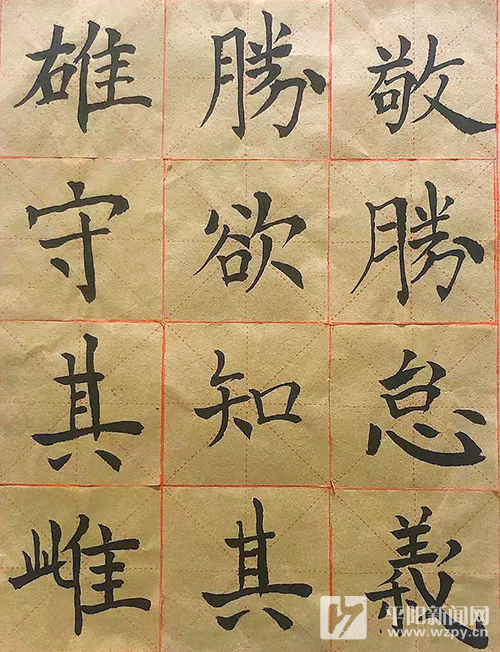 敬勝怠義
勝欲知其
雄守其雌
平阳新闻网
www.wzpy.cn